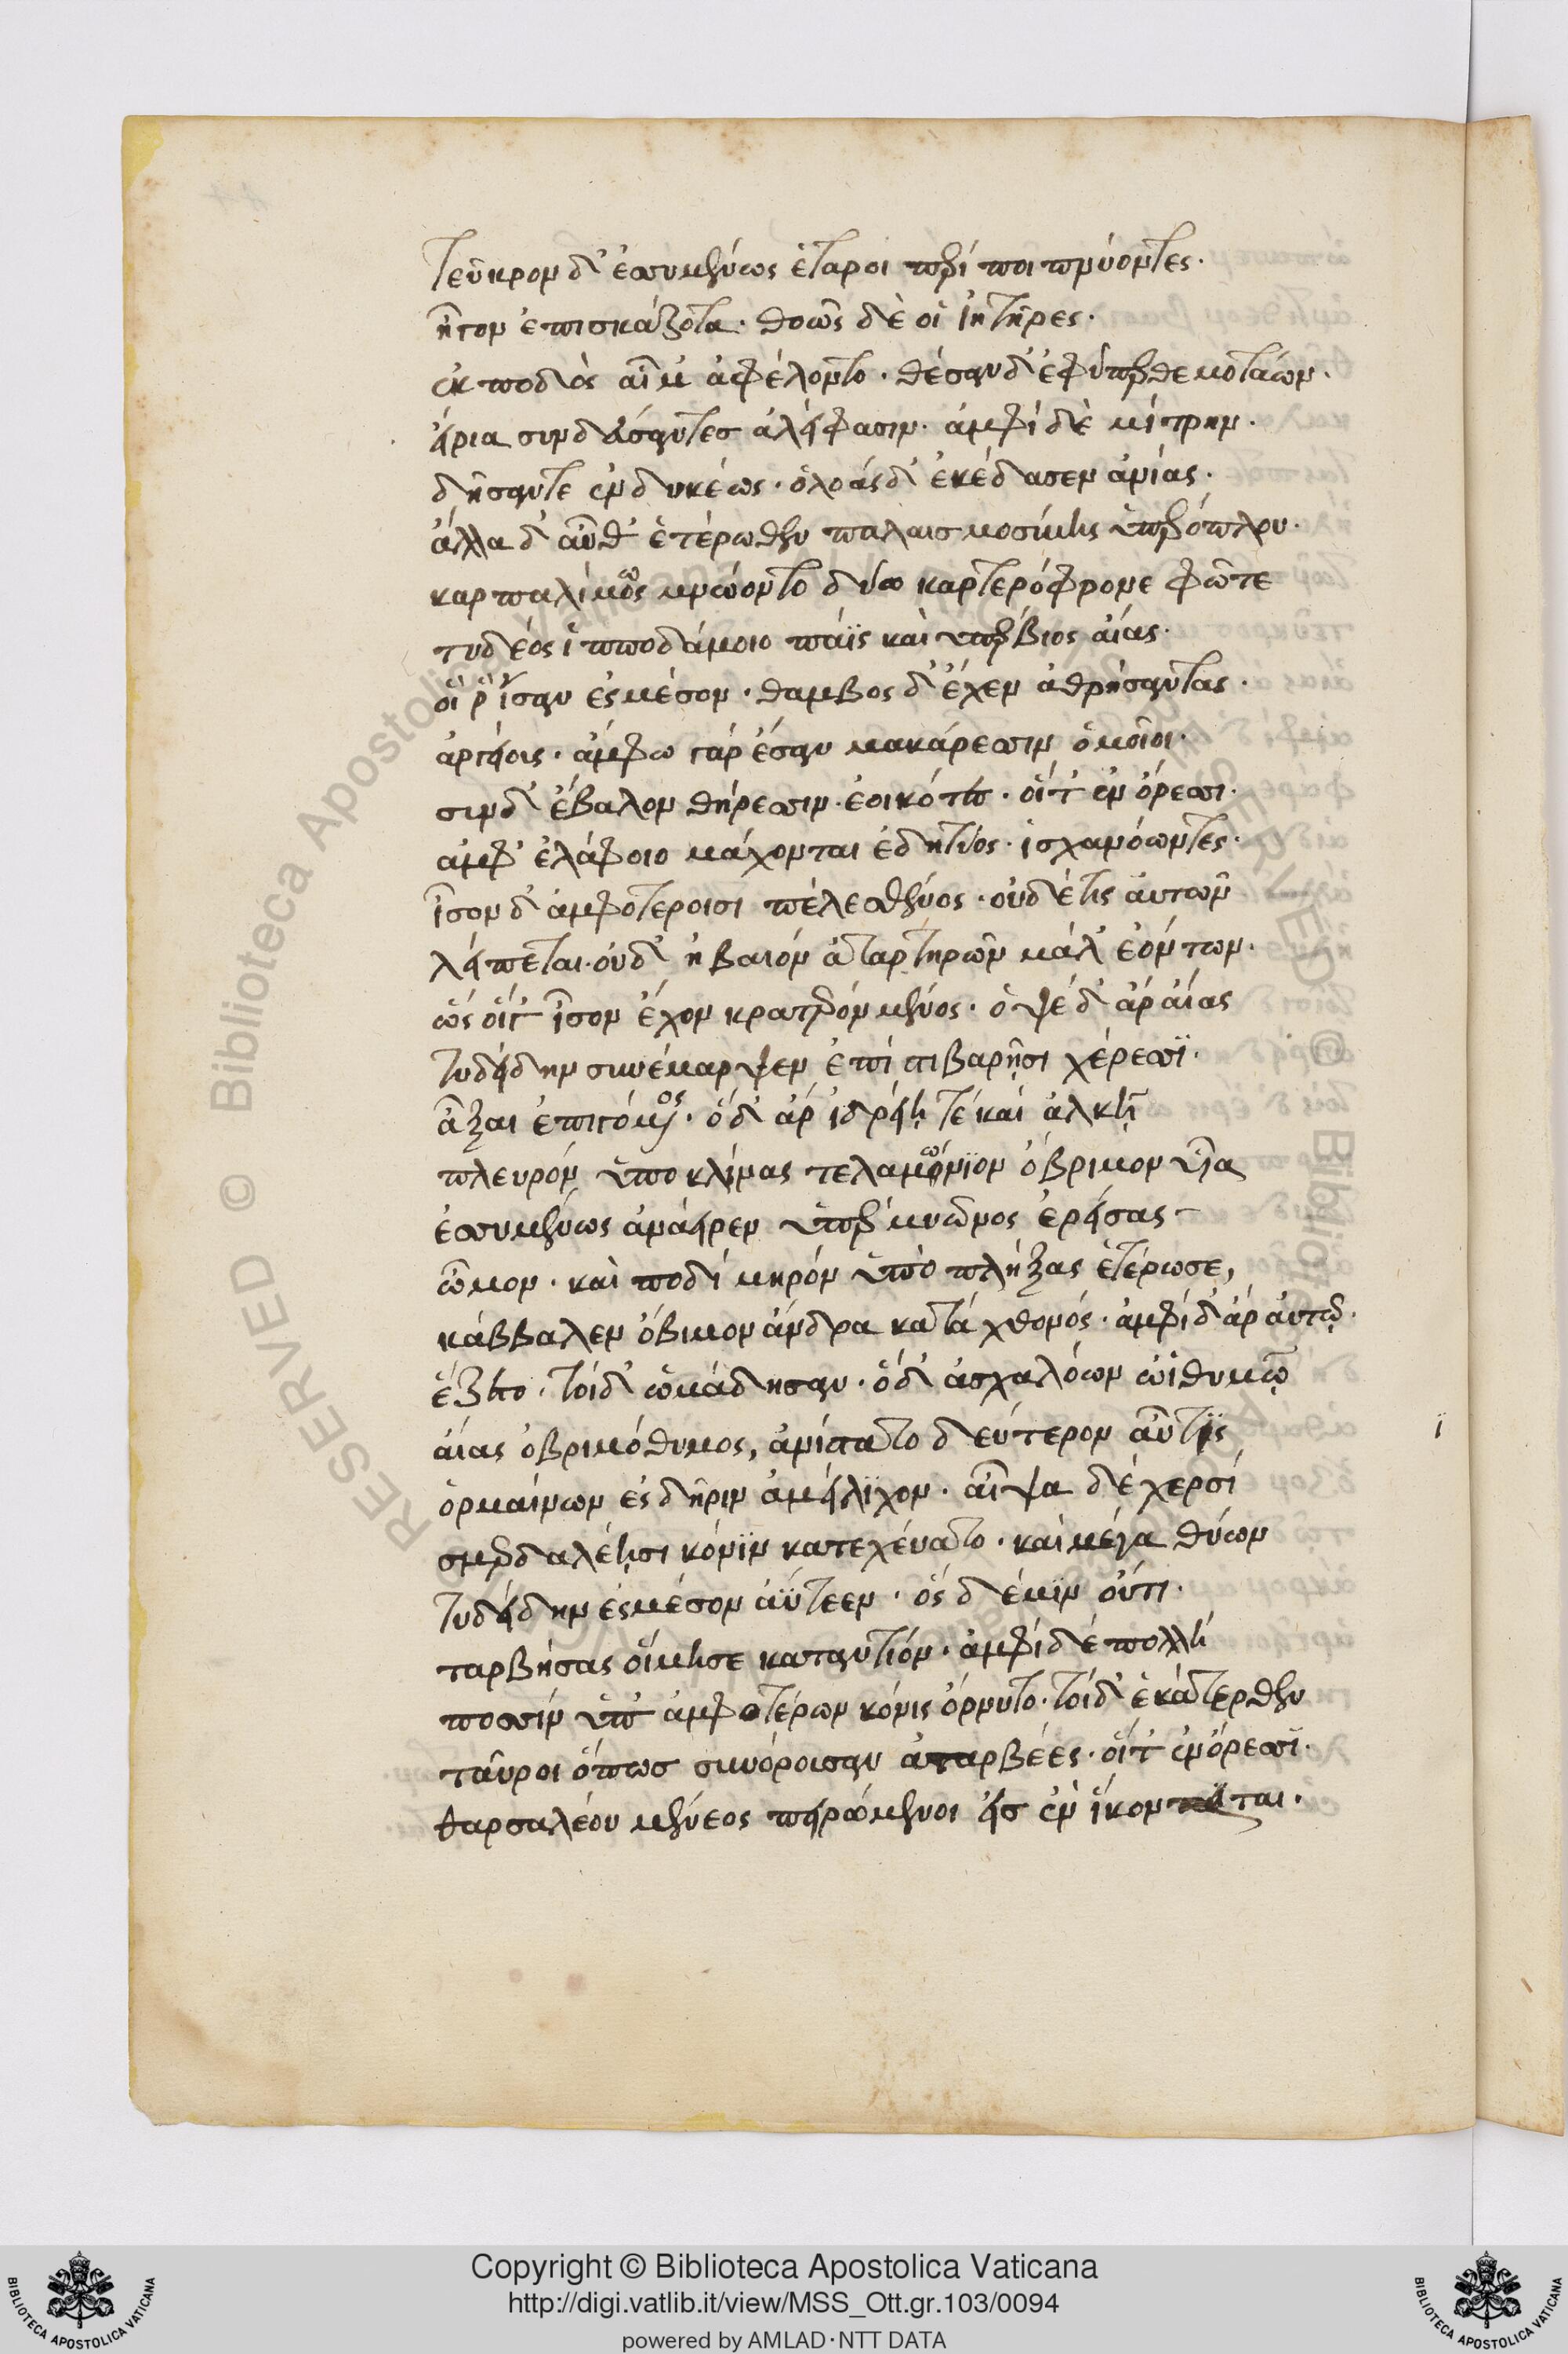 Τεῦκρον δ' ἐσσυμένως ἕταροι περί ποιπνύοντες.
ἦγον ἐπισκάζοντα. θοῶς δὲ οἱ ἰητῆρες.
ἐκ ποδὸς αἷμ' ἀφέλοντο. θέσαν δ' ἐφύπερθε μοταίων.
εἴρια συνδεύσαντες ἀλείφασιν. ἀμφὶ δὲ μίτρην.
δῆσαντε ἐνδυκέως. ὀλοάς δ' ἐκέδασεν ἀνίας.
ἄλλα δ' αὖθ' ἑτέρωθεν παλαισμοσύνης ὑπερόπλου.
καρπαλίμως μνώοντο δύω καρτερόφρονε φῶτε
τυδέος ἱπποδάμοιο πάϊς καὶ ὑπέρβιος αἴας.
οἵ ῥ' ἴσαν ἐς μέσον. θαμβος δ' ἔχεν ἀθρήσαντας.
ἀργείοις. ἄμφω γάρ ἔσαν μακάρεσσιν ὁμοῖοι.
σὺν δ' ἔβαλον θήρεσσιν ἐοικότες. οἵτ' ἐν ὄρεσσι.
ἀμφ' ἐλάφοιο μάχονται ἐδητύος. ἰσχανόωντες.
ἶσον δ' ἀμφοτεροισι πέλεσθένος. οὐδέτις αὐτῶν
λείπεται. οὐδ' ἠβαιόν ἀταρτηρῶν μάλ' ἐόντων.
ὥς οἵγ' ἶσον ἔχον κρατερόν μένος. ὀψέ δ' ἄρ αἴας
Τυδείδην συνέμαρψεν ἐπί στιβαρῇσι χέρεσσϊ.
ἆξαι ἐπιγόμενος. ὅδ' ἄρ ἰδρείῃ τέ καί ἀλκῇ
πλευρόν ὑποκλίνας τελαμώνϊον ὄβριμον υἷα
ἐσσυμένως ἀνάειρεν ὑπέρ μυῶνος ἐρείσας
ὦμον. καὶ ποδί μηρόν ὑπὸ πλήξας ἑτέρωσε,
κάββαλεν ὄβιμον ἄνδρα κατά χθονός. ἀμφί δ' ἄρ αὐτῷ.
ἕζετο. τοίδ' ὁμάδησαν. ὅδ' ἀσχαλόων ἐνὶ θυμῷ
αἴας ὀβριμόθυμος, ἀνίστατο δεύτερον αὖτϊς
ὁρμαίνων ἐς δῆριν ἀμείλϊχον. αἶψα δέ χερσί
σμερδαλέῃσι κόνϊν κατεχεύατο. καὶ μέγα θύων
Τυδείδην ἐς μέσον ἀΰτεεν. ὅς δέ μϊν οὔτι.
ταρβήσας οἴμησε καταντίόν. ἀμφί δέ πολλή
ποσσίν ὑπ' ἀμφοτέρων κόνις ὄρνυτο. τοίδ' ἑκάτερθεν
ταῦροι ὅπωσ συνόρουσαν ἀταρβέες. οἵτ' ἐν ὄρεσσϊ.
θαρσαλέου μένεος πειρώμενοι εἰσ ἐν ἵκονται.
ϊ
Copyright © Biblioteca Apostolica Vaticana
http://digi.vatlib.it/view/MSS_Ott.gr.103/0094
powered by AMLAD·NTT DATA